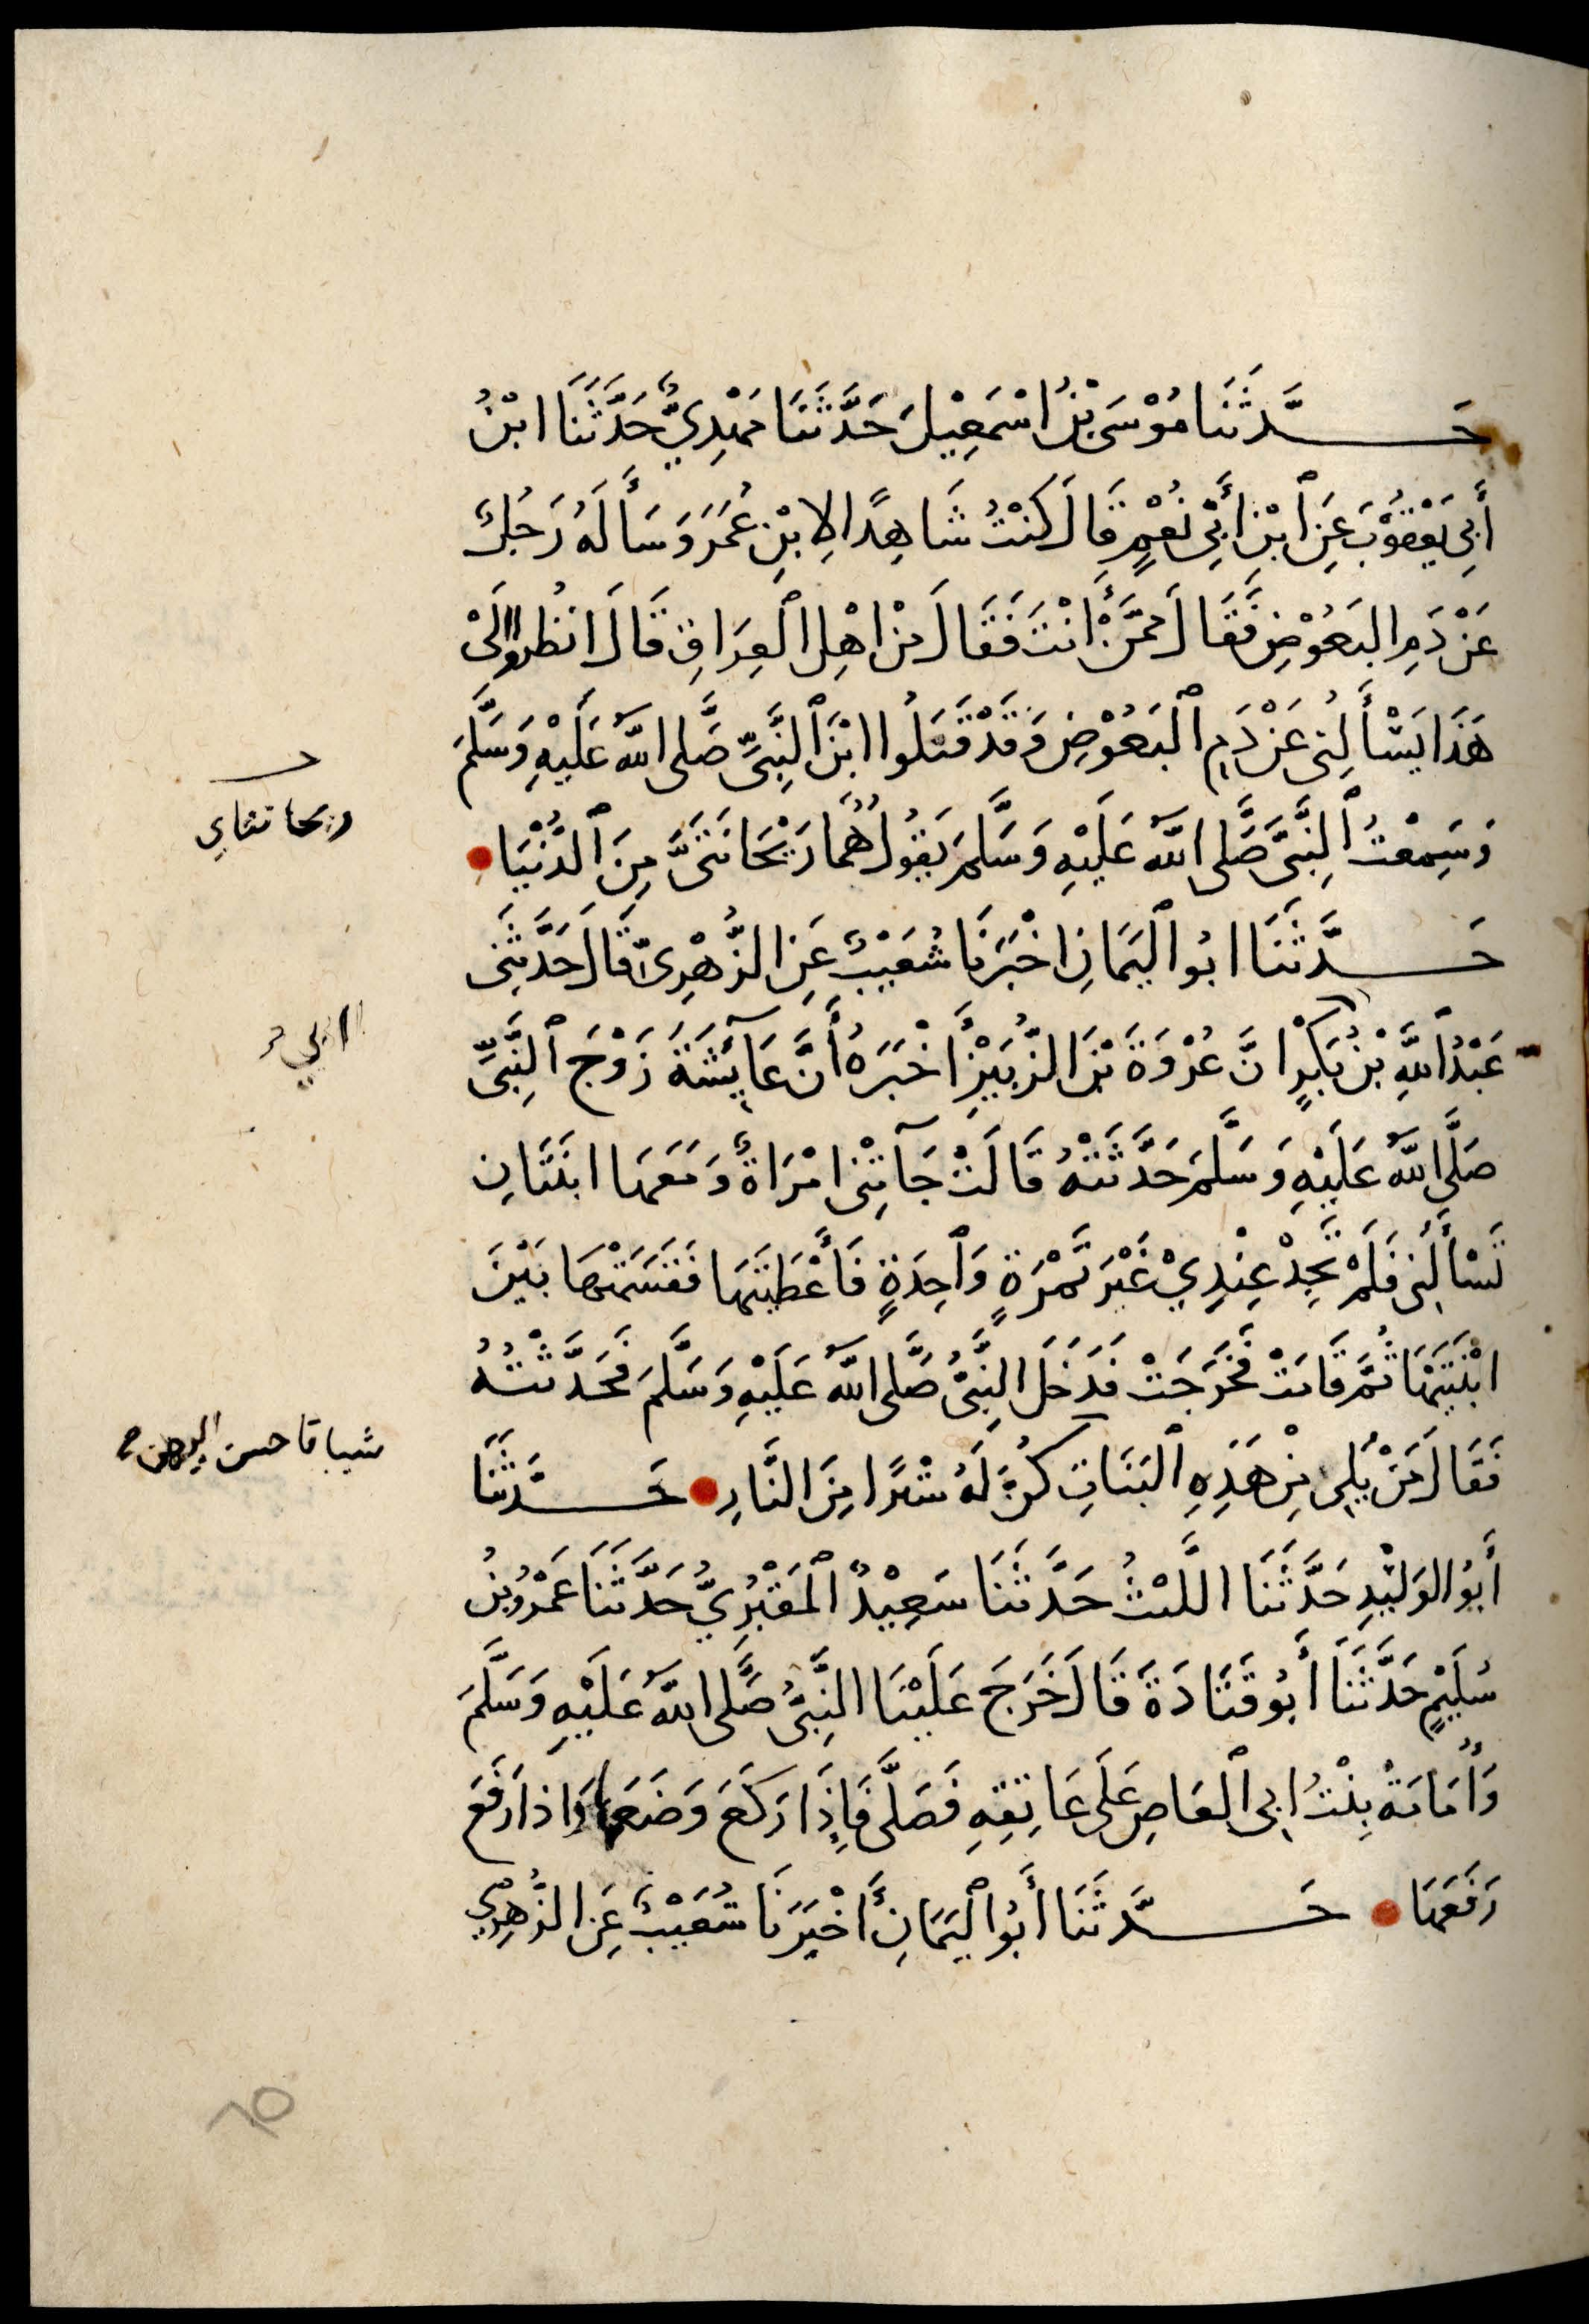 حَدَّثَنَا مُوْسَى بْنُ اسْمَعِيْلَ حَدَّثَنَا مَهْدِيٌّ حَدَّثَنَا ابْنُ
أَبِى يَعْقُوْبَ عَنِ ابْنِ أَبِىْ نُعْمٍ قَالَ كُنْتُ شَاهِدًا لِابْنِ عُمَرَ وَسَأَلَهُ رَجُلٌ
عَنْ دَمِ البَعُوْضِ فَقَالَ مِمَّنْ أَنْتَ فَقَالَ مِنْ اهْلِ العِرَاقِ قَالَ انْظُرُوا الَىْ
هَذَا يَسْأَلُنِى عَنْ دَمِ البَعُوْضِ وَقَدْ قَتَلُوا ابْنَ النَّبِىِّ صَلَّى اللّٰهُ عَلَيْهِ وَسَلَّمَ
وَسَمِعْتُ النَّبِىَّ صَلَّى اللّٰهُ عَلَيْهِ وَسَلَّمَ يَقُوْلُ هُمَا رَيْحَانَتَىَّ مِنَ الدُّنْيَا
ريحانتاي
حَدَّثَنَا ابُو اليَمَانِ اخْبَرَنَا شُعَيْبٌ عَنِ الزُّهْرِىِّ قَالَ حَدَّثَنِى
عَبْدُ اللّٰهِ بْنُ بَكْرٍ انَّ عُرْوَةَ بْنَ الزُّبَيْرِ أَخْبَرَهُ أَنَّ عَآئِشَةَ زَوْجَ النَّبِىِّ
صَلَّى اللّٰهُ عَلَيْهِ وَسَلَّمَ حَدَّثَتْهُ قَالَتْ جَآتْنِى امْرَاةٌ وَمَعَهَا ابْنَتَانِ
تَسْأَلُنِى فَلَمْ تَجِدْ عِنْدِيْ غَيْرَ تَمْرَةٍ وَاحِدَةٍ فَأَعْطَيْتُهَا فَقَسَمَتْهَا بَيْنَ
ابْنَتَيْهَا ثُمَّ قَامَتْ فَخَرَجَتْ فَدَخَلَ النَّبِىُّ صَلَّى اللّٰهُ عَلَيْهِ وَسَلَّمَ فَحَدَّثْتُهُ
فَقَالَ مَنْ يَلِى مِنْ هَذِهِ البَنَاتِ كُنَّ لَهُ سِتْرًا مِنَ النَّارِ حَدَّثَنَا
أَبُو الوَلِيْدِ حَدَّثَنَا اللَّيْثُ حَدَّثَنَا سَعِيْدٌ المَقْبُرِيُّ حَدَّثَنَا عَمْرُو بْنُ
سُلَيْمٍ حَدَّثَنَا أَبُو قَتَادَةَ قَالَ خَرَجَ عَلَيْنَا النَّبِىُّ صَلَّى اللّٰهُ عَلَيْهِ وَسَلَّمَ
وَأُمَامَةُ بِنْتُ ابِى العَاصِ عَلَى عَاتِقِهِ فَصَلَّى فَإِذَا رَكَعَ وَضَعَهَا وَاذَا رَفَعَ
رَفَعَهَا حَدَّثَنَا أَبُو اليَمَانِ أَخْبَرَنَا شُعَيْبٌ عَنِ الزُّهْرِي